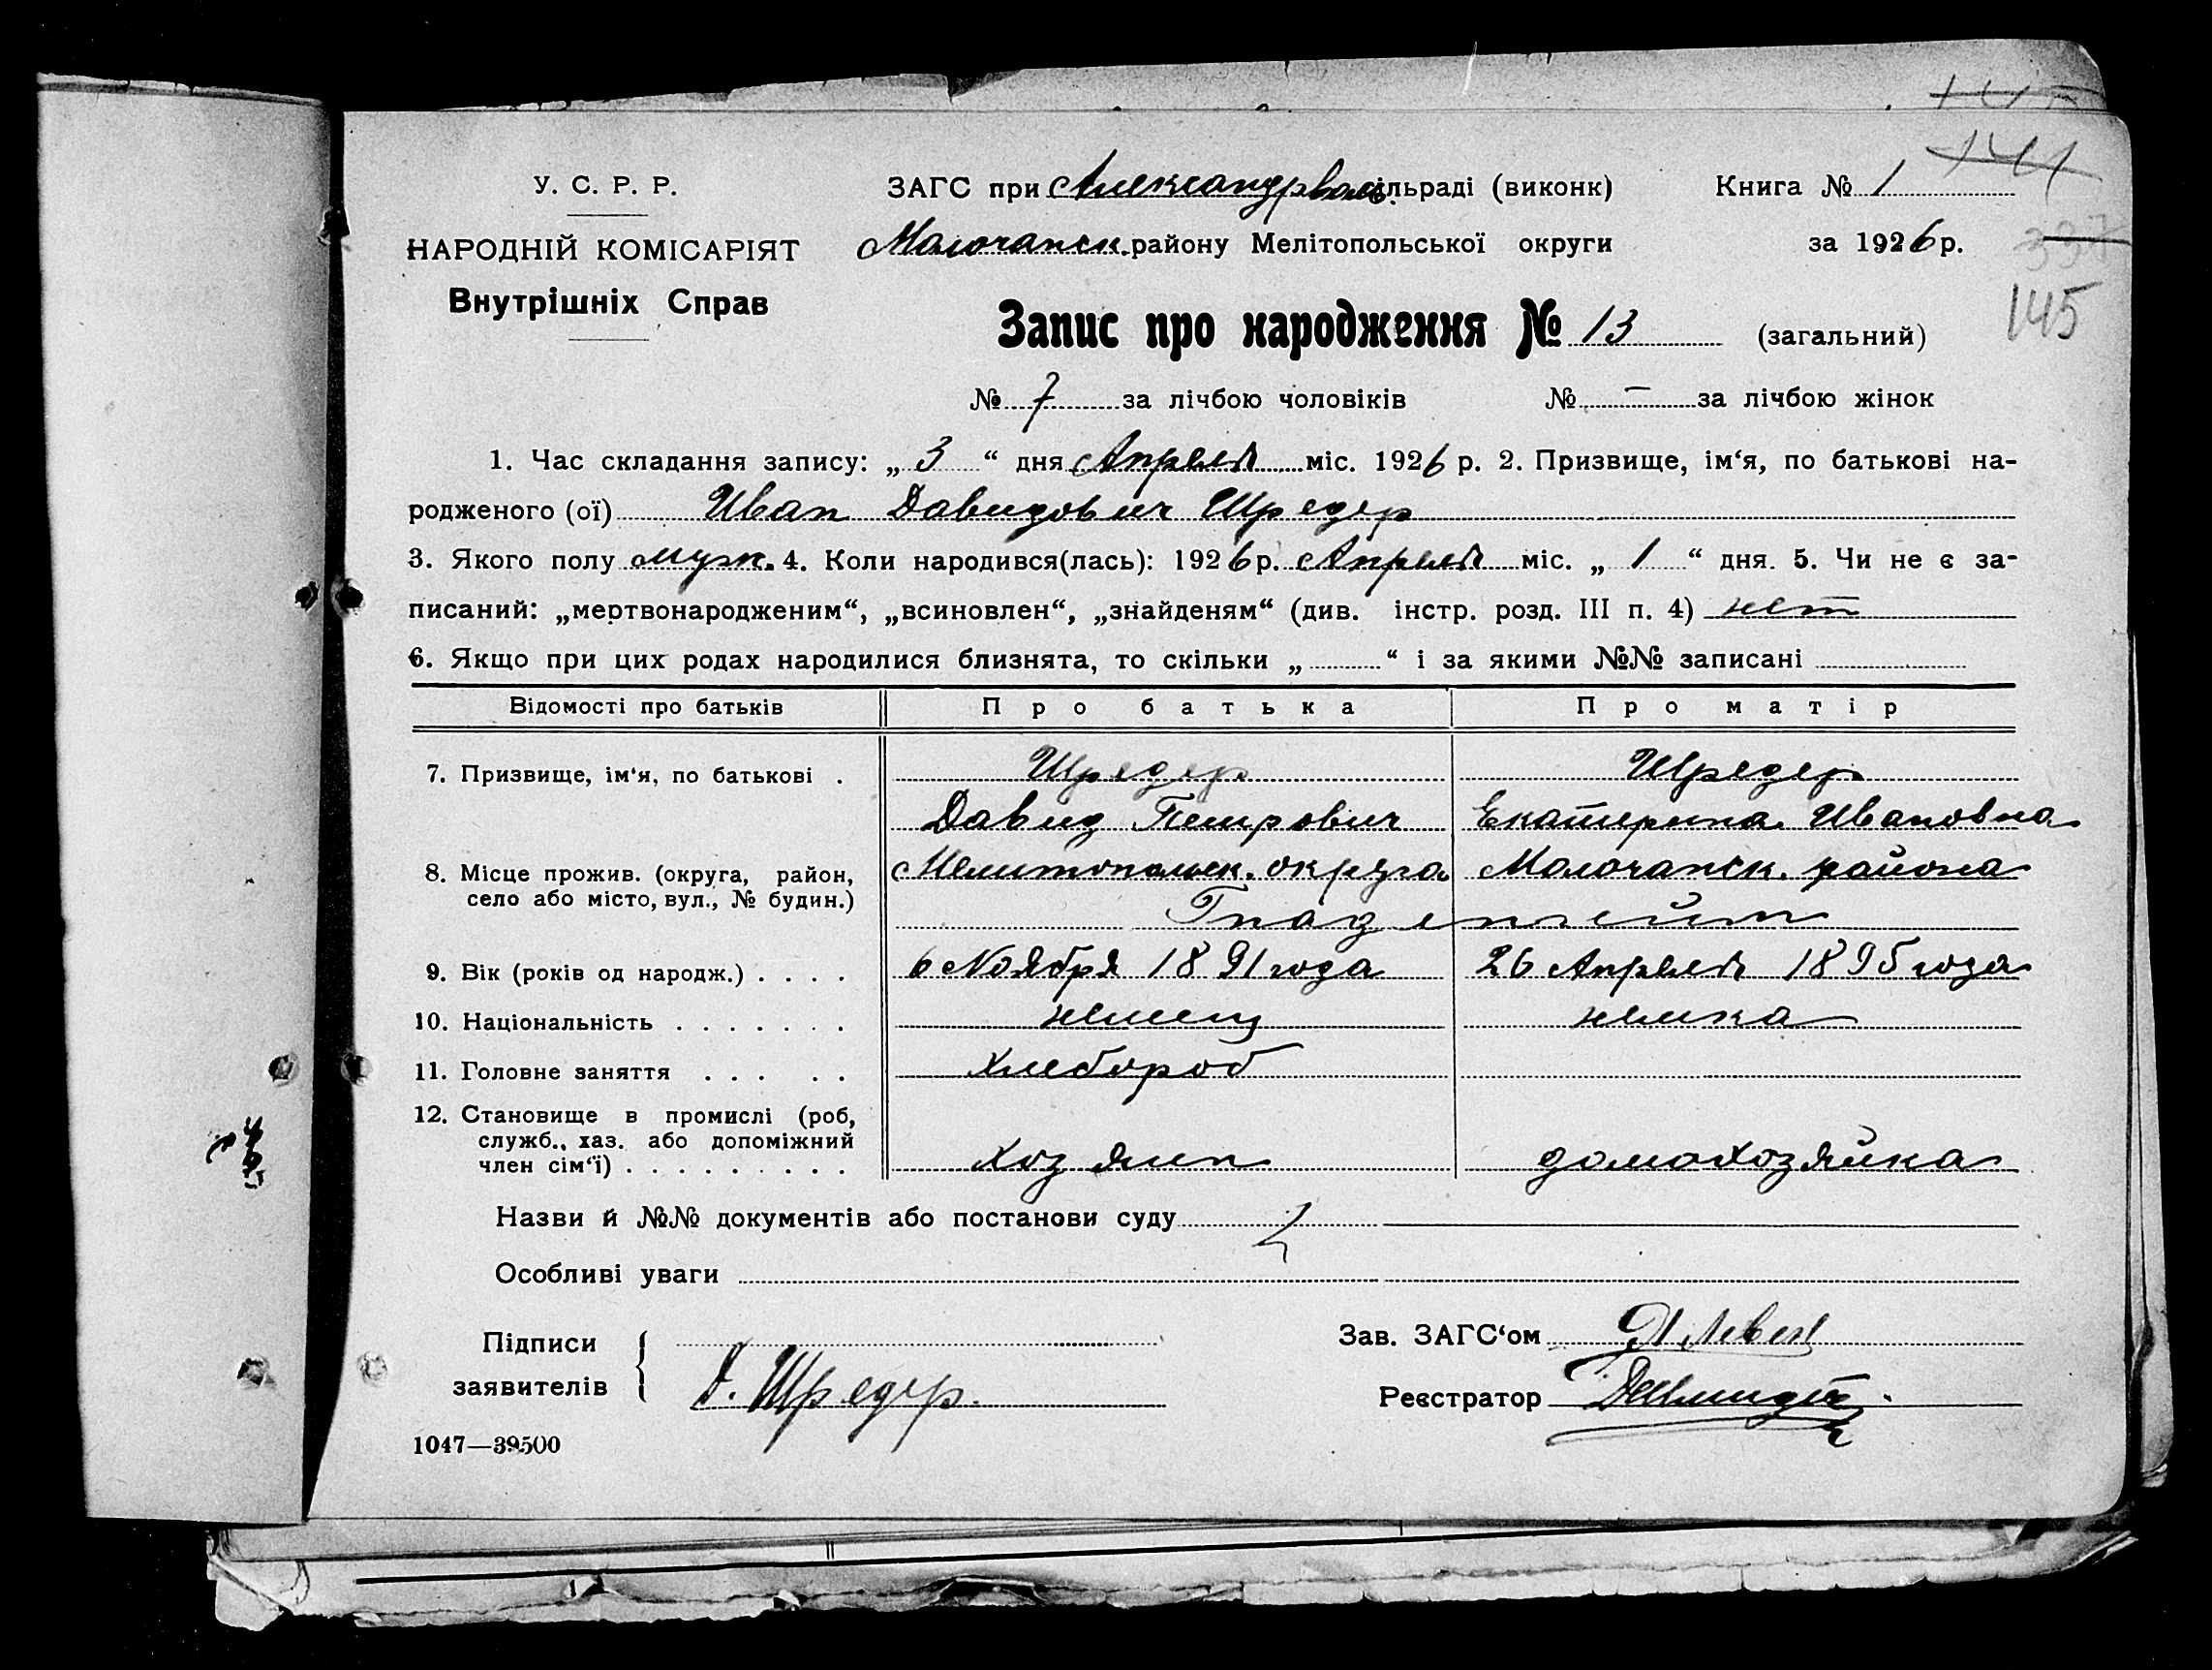 У. С. Р. Р.
НАРОДНІЙ КОМІСАРІЯТ
Внутрішніх Справ
ЗАГС при Александрвольс. сільраді (виконк)
Молочанск. району Мелітопольської округи
Книга № 1
за 1926 р.
141
145
Запис про народження № 13 (загальний)
№ 7 за лічбою чоловіків № — за лічбою жінок
1. Час складання запису: „ 3 “ дня Апреля міс. 1926 р. 2. Призвище, ім‘я, по батькові на-
родженого (ої) Иван Давидович Шредер
3. Якого полу муж. 4. Коли народився(лась): 1926 р. Апреля міс. „ 1 “ дня. 5. Чи не є за-
писаний: „мертвонародженим“, „всиновлен“, „знайденям“ (див. інстр. розд. III п. 4) нет
6. Якщо при цих родах народилися близнята, то скільки „ “ і за якими №№ записані
Відомості про батьків Про батька Про матір
7. Призвище, ім‘я, по батькові . Шредер Шредер
Давид Петрович Екатерина Ивановна
8. Місце прожив. (округа, район, Мелитопольск. округа Молочанск. района
село або місто, вул., № будин.) Гнаденгейм
9. Вік (років од народж.) . . . . 6 Ноября 1891 года 26 Апреля 1895 года
10. Національність . . . . . . . немец немка
11. Головне заняття . . . . . Хлебороб
12. Становище в промислі (роб,
служб., хаз. або допоміжний
член сім‘ї) . . . . . . . . . Хозяин домохозяйка
Назви й №№ документів або постанови суду
Особливі уваги
Підписи
заявителів
Д. Шредер.
Зав. ЗАГС‘ом
Реєстратор
1047—39500